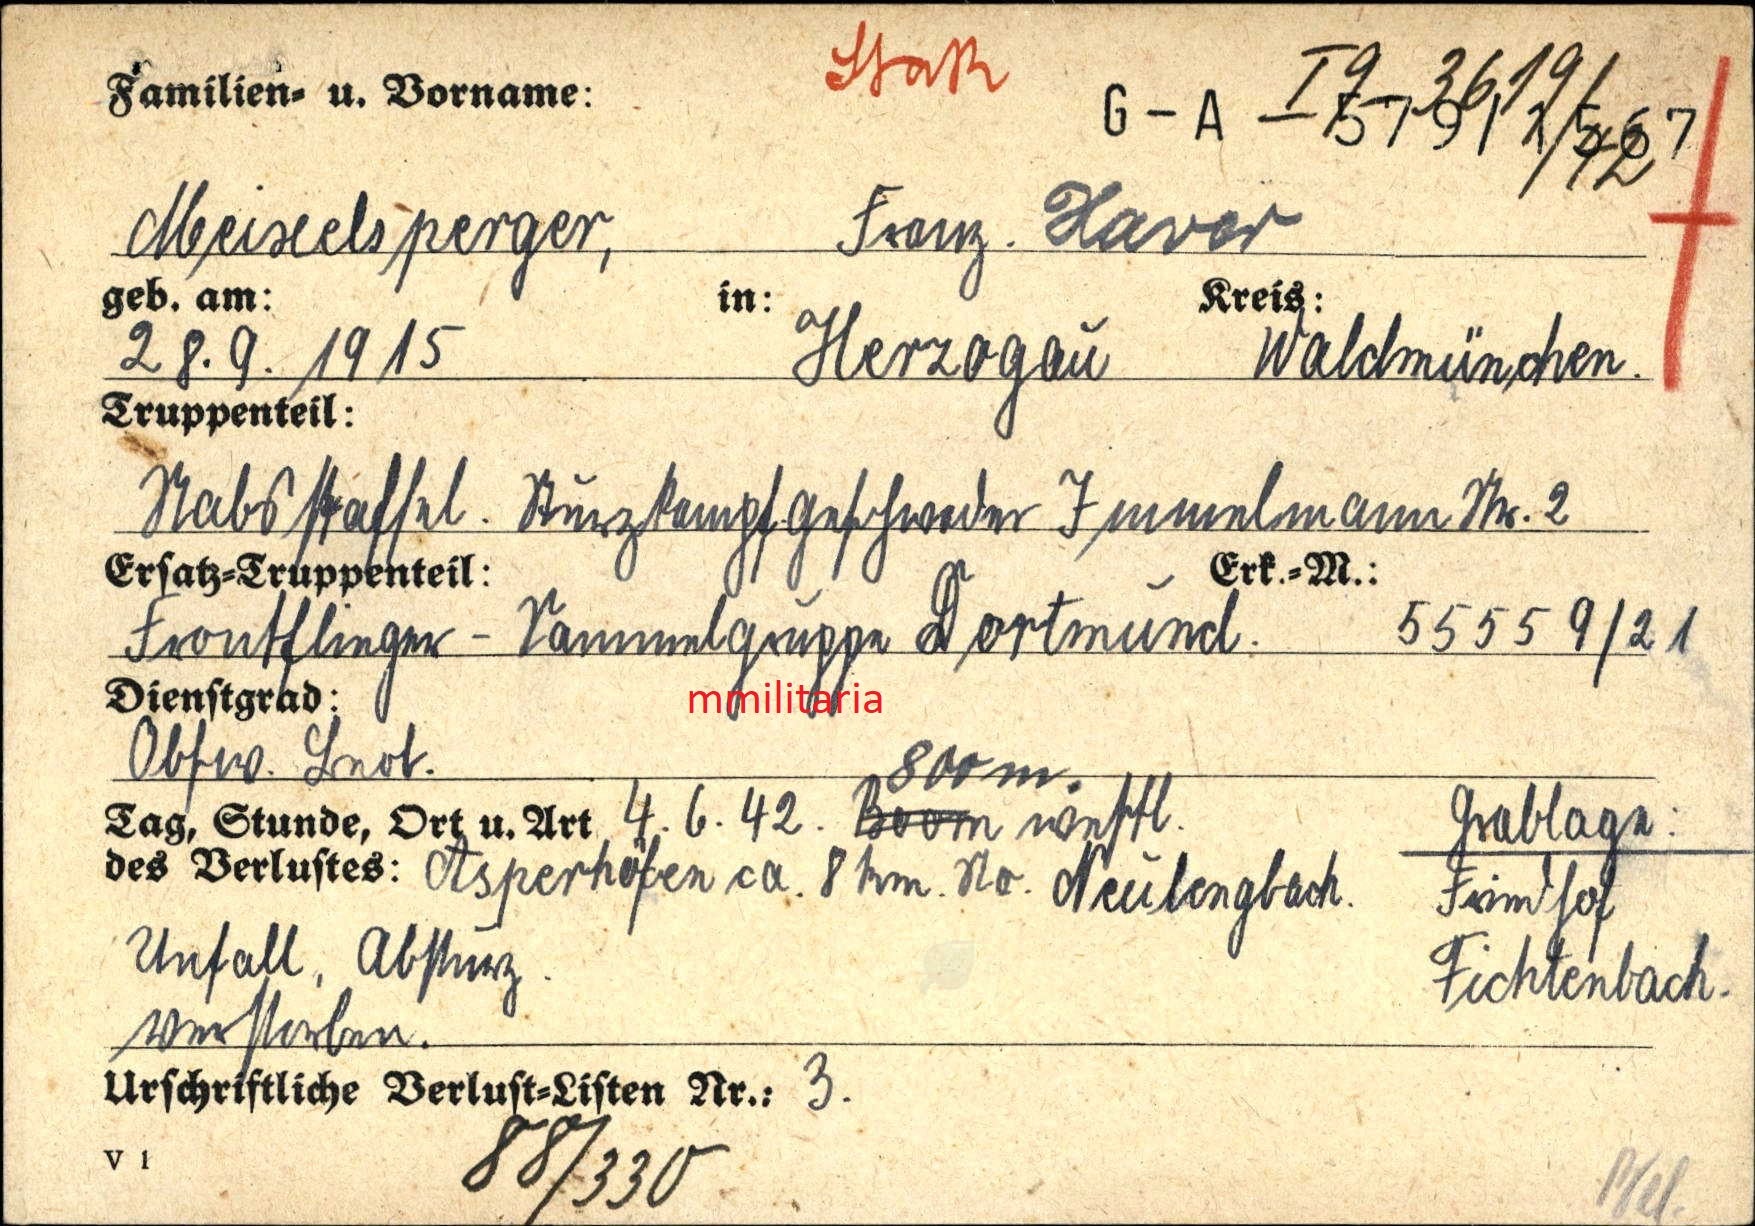 StaR
Familien- u. Vorname:
I9-3619/42
G-A -579/1567
Meixelsperger, Franz. Xaver
geb. am: in: Kreis:
28.9.1915 Herzogau Waldmünchen.
Truppenteil:
Stabsstaffel. Sturzkampfgeschwader Immelmann Nr. 2
Ersatz-Truppenteil: Erk.-M.:
Frontflieger - Sammelgruppe Dortmund. 55559/21
Dienstgrad:
mmilitaria
Obfw.
800 m.
Tag, Stunde, Ort u. Art 4.6.42. westl. Grablage:
des Verlustes: Asperhofen ca. 8 km. No. Neulengbach. Friedhof
Unfall, Absturz. Fichtenbach.
verstorben.
Urschriftliche Verlust-Listen Nr.: 3.
V 1 88/330